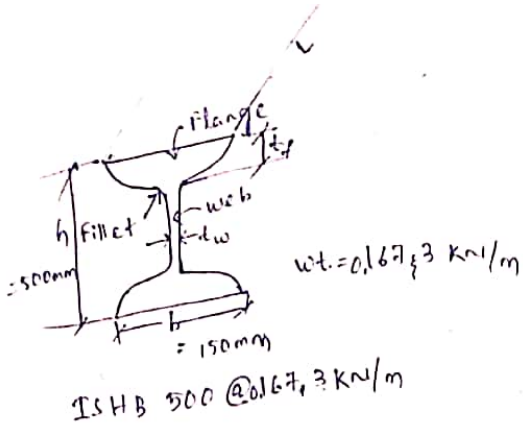 Flange
tf
h
Fillet
web
tw
= 500mm
wt. = 0.167,3 KN/m
b
= 150mm
ISHB 500 @0.167,3 KN/m